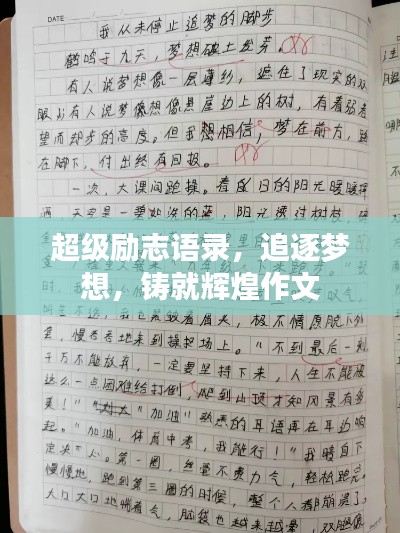 DATE
我从未停止追梦的脚步
鹤鸣于九天，梦想破土发芽。
有人说梦想像一层薄纱，遮住了现实的双
眼；有人说梦想像悬崖边上的树，有着弱者
望而却步的高度。但我想相信，梦在前方，路
在脚下，付出终有回报。
一次，大课间跑操。着夏日的阳光暖暖
洒
超级励志语录，追逐梦
想，铸就辉煌作文
叹气
极不情愿
慢吞吞地来到操场上。“不到最后一刻
千万不能放弃，一定要坚持下来，人生不能被
这么一点困难给打倒，爬到山顶才知风景有多
美！”“加油”熟悉的耳语再在耳边响
起。“加油，体育中考，我能行！”我暗自下
定决心。第一圈，丝毫不费力气，轻松跑完。
慢慢地，跑到第三圈的时候，整个人都崩溃了，
大口大口地喘着气，脑袋也越来越晕，双腿像